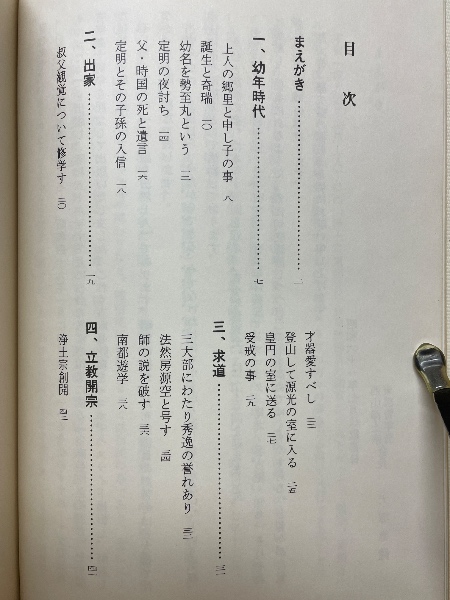 目次
まえがき……………………一
一、幼年時代……………………七
上人の郷里と申し子の事 八
誕生と奇瑞 一〇
幼名を勢至丸という 一三
定明の夜討ち 一四
父・時国の死と遺言 一六
定明とその子孫の入信 一八
二、出家……………………一九
叔父観覚について修学す 二〇
才器愛すべし 二三
登山して源光の室に入る 二五
皇円の室に送る 二七
受戒の事 二九
三、求道……………………三一
三大部にわたり秀逸の誉れあり 三二
法然房源空と号す 三四
師の説を破す 三六
南都遊学 三八
四、立教開宗……………………四一
浄土宗創開 四二